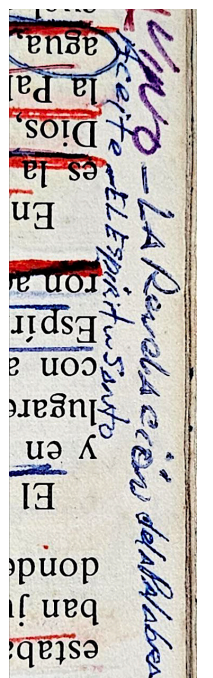 estaba
ban ju
donde
El
y en
lugare
con a
Espír
ron ac
En
es la
Dios,
la Pal
agua,
VINO - LA Revelación de la Palabra
Aceite - EL Espiritu Santo